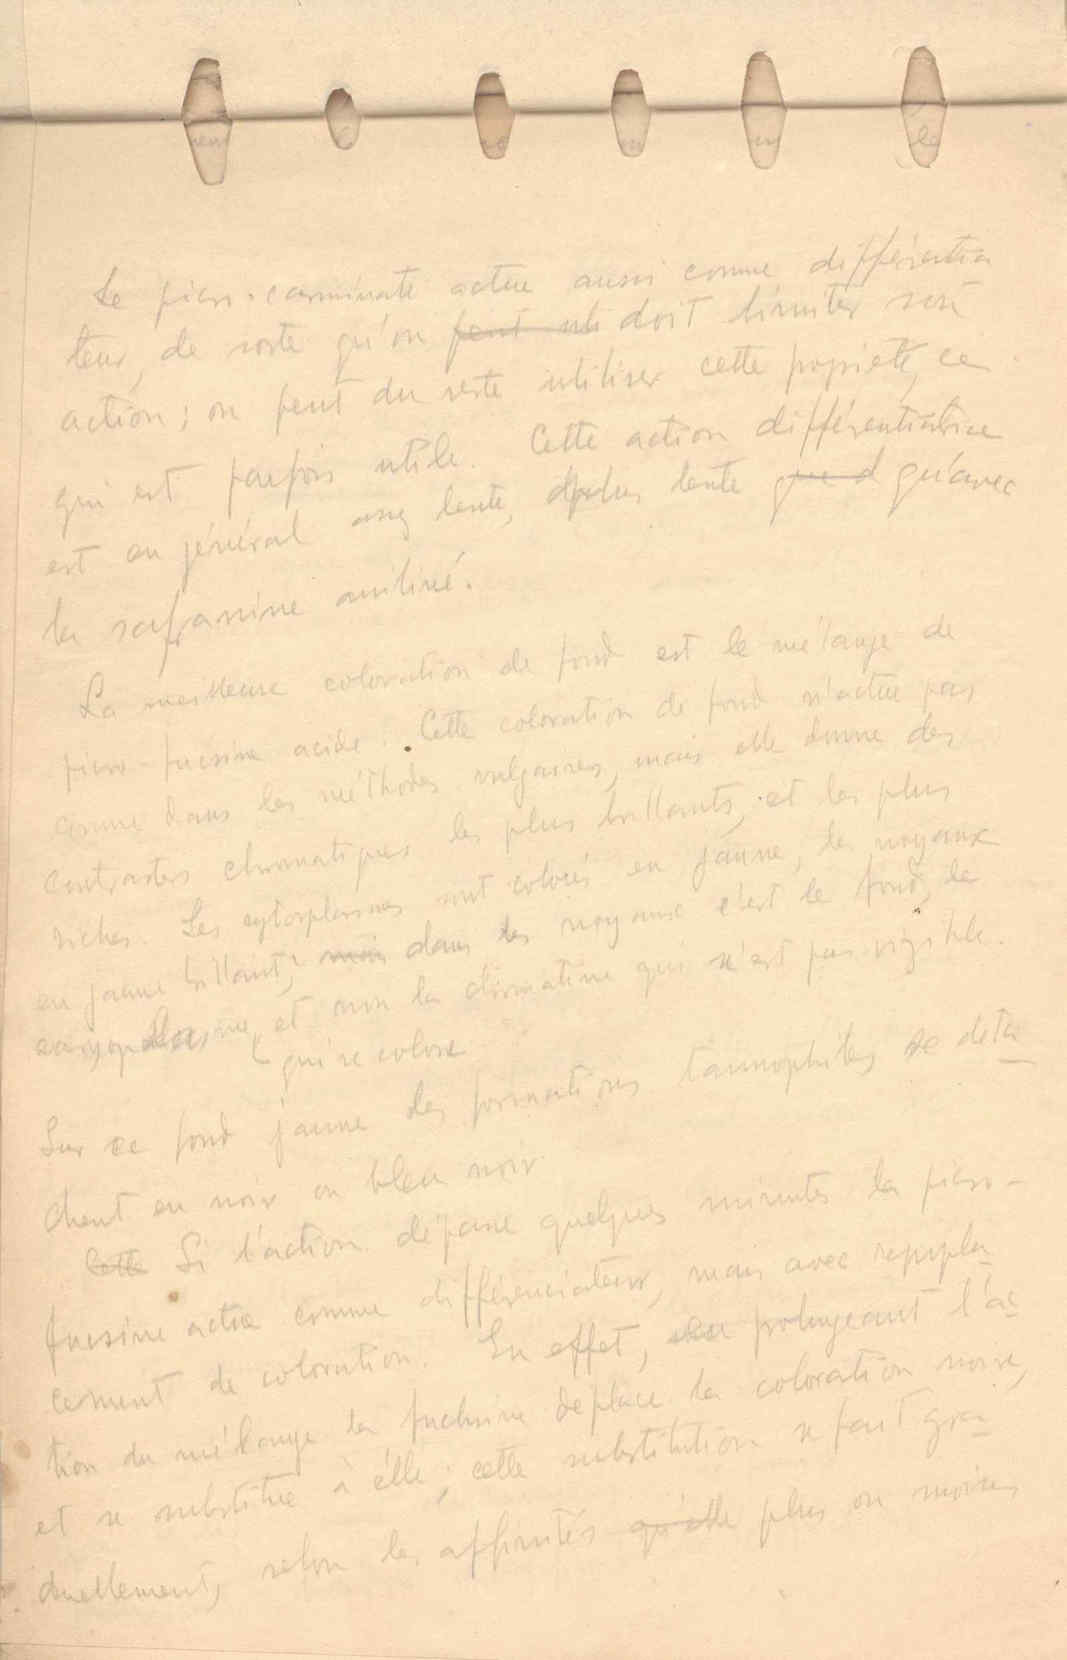 Le picro-carminate actue aussi comme différentia
teur, de sorte qu'on peut uti doit limiter son
action; on peut du reste utiliser cette propriété, ce
qui est parfois utile. Cette action différentiatrice
est en général assez lente, plus lente que d qu'avec
la safranine aniliné.
La meilleure coloration de fond est le mélange de
picro-fucsine acide. Cette coloration de fond n'actue pas
comme dans les méthodes vulgaires, mais elle donne des
contrastes chromatiques les plus brillants, et les plus
riches. Les cytoplasmes sont colorés en jaune, les noyaux
en jaune brillant; mais dans les noyaux c'est le fond, le
caryoplasme, et non la chromatine qui n'est pas visible.
qui se colore
Sur ce fond jaune les formations tannophiles se deta
chent en noir ou bleu noir.
Cette Si l'action dépasse quelques minutes la picro-
fucsine actue comme différenciateur, mais avec rempla
cement de coloration. En effet, prolongeant l'ac
tion du mélange la fuchsine déplace la coloration noire,
et se substitue à elle; cette substitution se fait gra
duellement, selon les affinités qu'elle plus ou moins